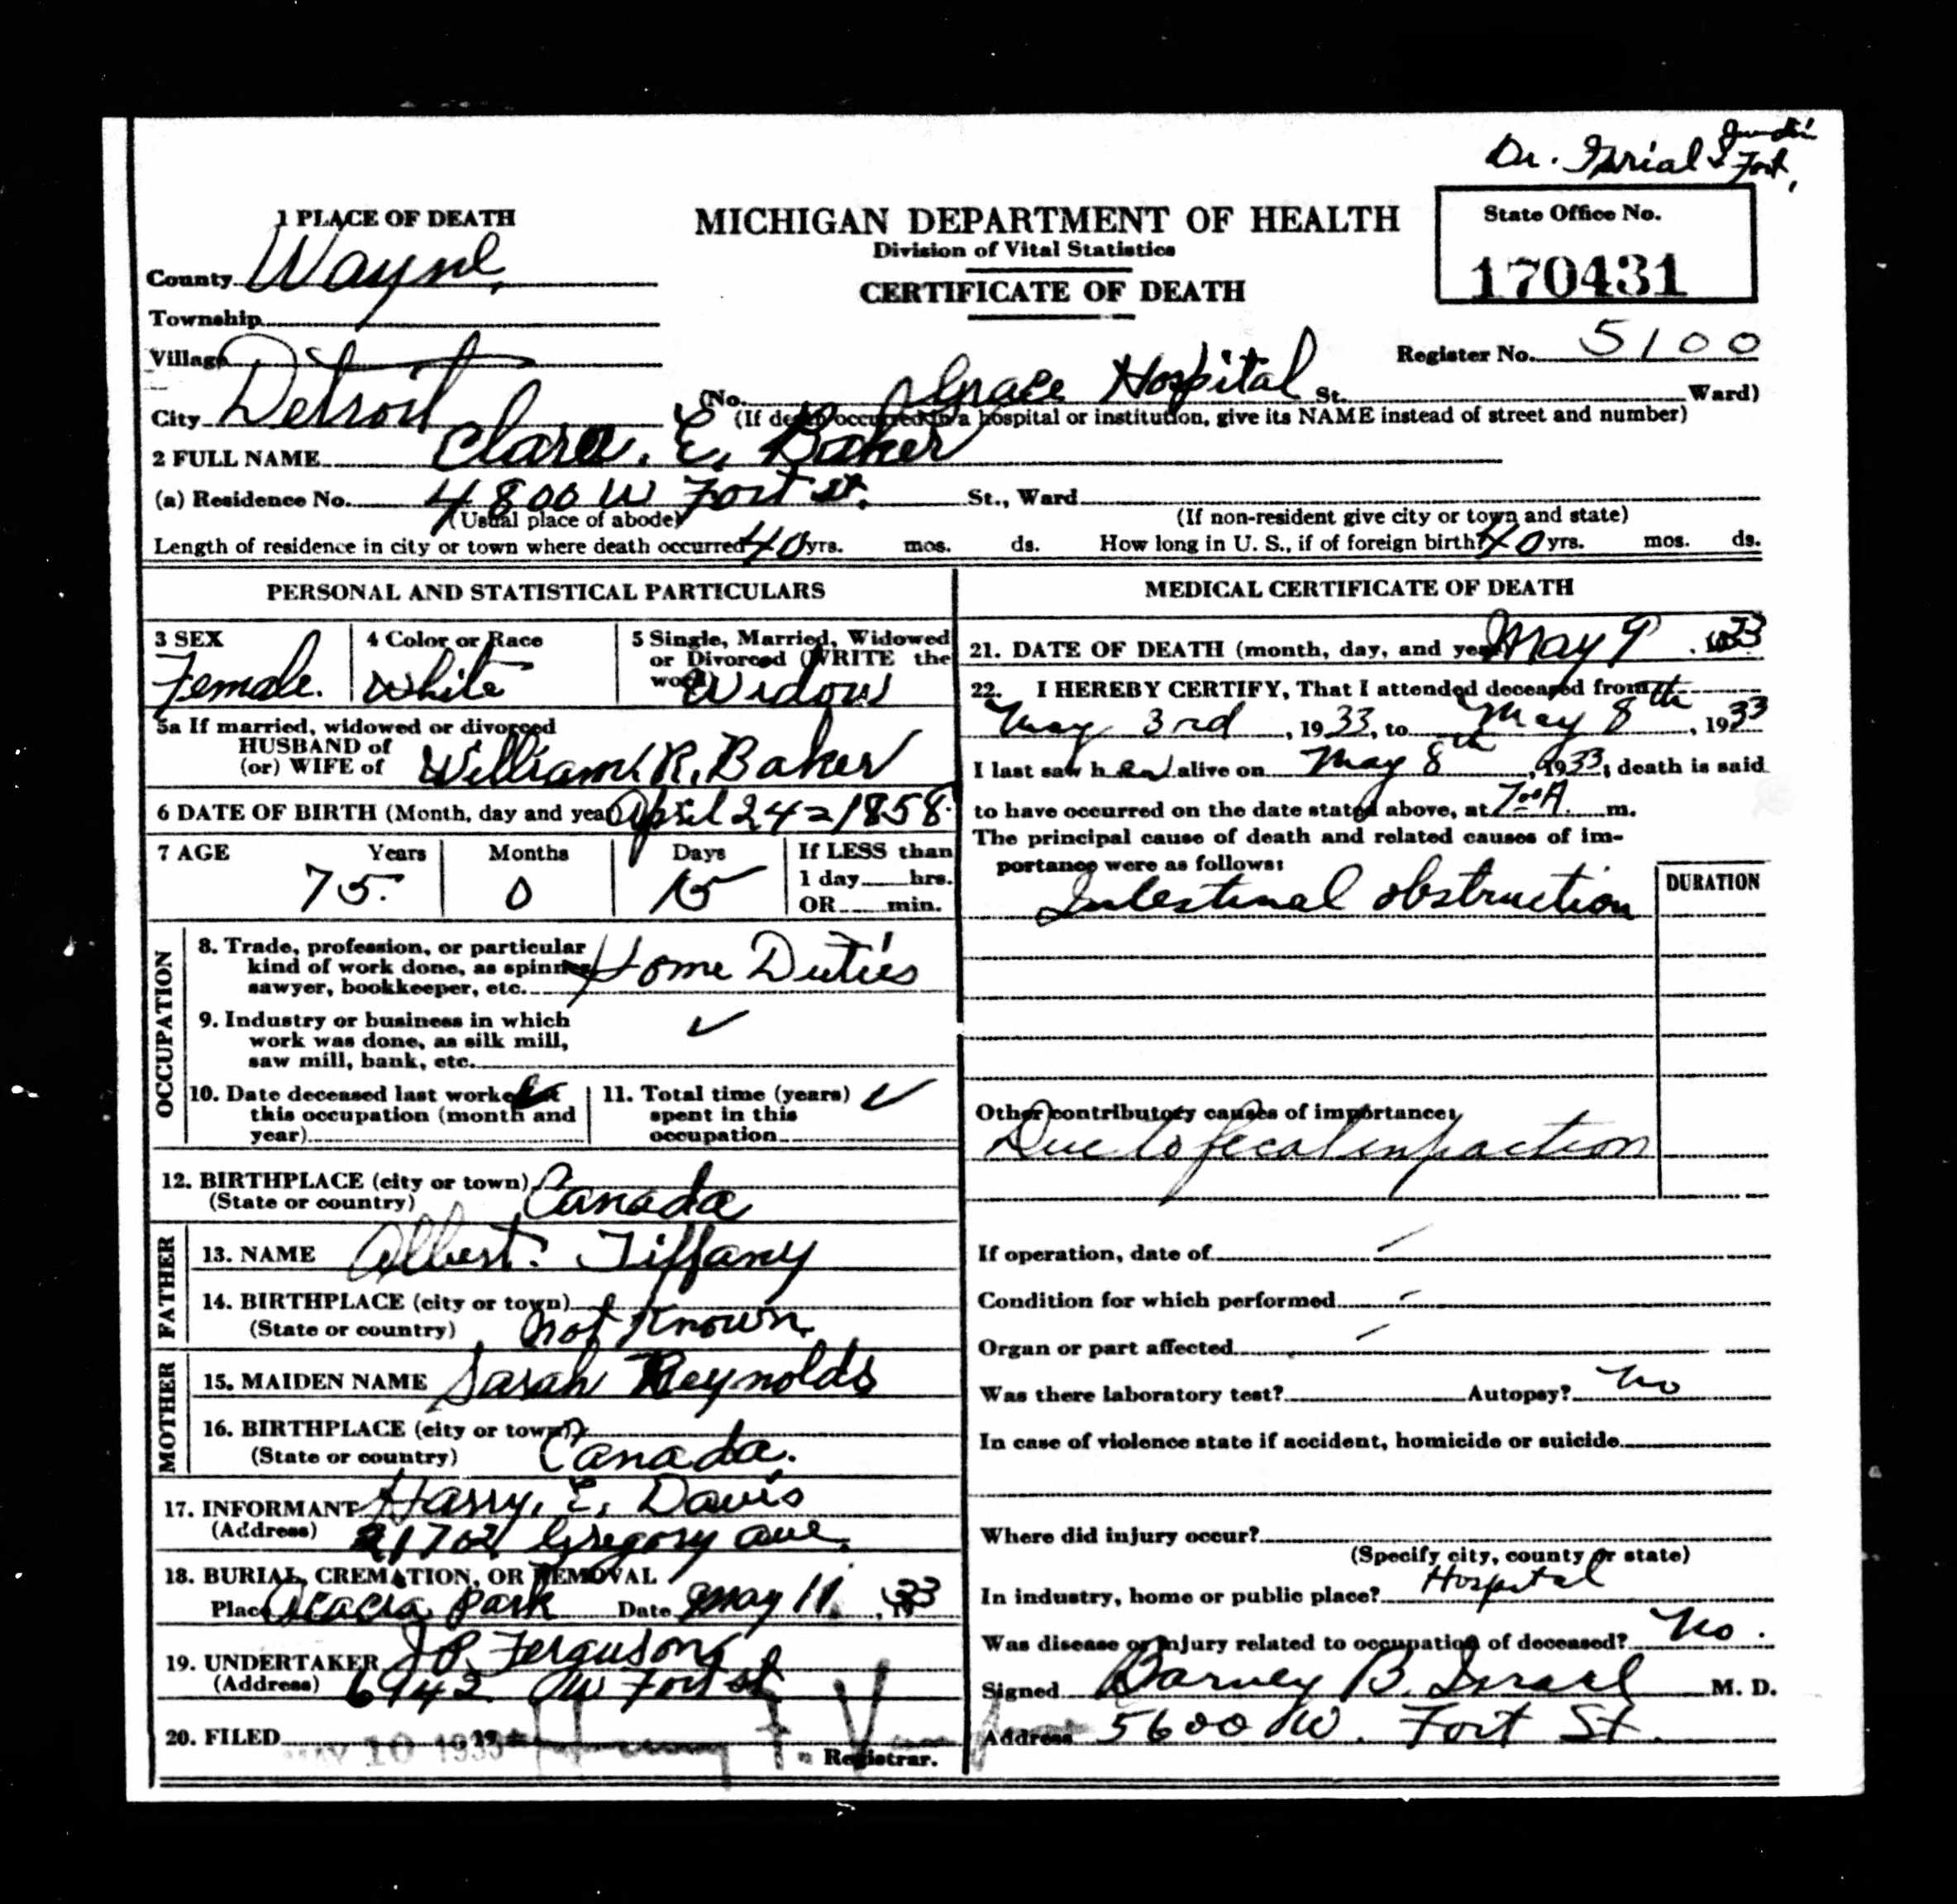 Dr.
1 PLACE OF DEATH
MICHIGAN DEPARTMENT OF HEALTH
Division of Vital Statistics
CERTIFICATE OF DEATH
State Office No.
170431
County Wayne
Township
Village
Register No. 5100
City Detroit (No. Grace Hospital St. Ward)
(If death occurred in a hospital or institution, give its NAME instead of street and number)
2 FULL NAME Clara. E. Baker
(a) Residence No. 4800 W Fort St. St., Ward
(Usual place of abode) (If non-resident give city or town and state)
Length of residence in city or town where death occurred 40 yrs. mos. ds. How long in U. S., if of foreign birth? 40 yrs. mos. ds.
PERSONAL AND STATISTICAL PARTICULARS
3 SEX
Female.
4 Color or Race
White
5 Single, Married, Widowed
or Divorced (WRITE the
word)
Widow
5a If married, widowed or divorced
HUSBAND of
(or) WIFE of William R. Baker
6 DATE OF BIRTH (Month, day and year) April 24 = 1858.
7 AGE Years Months Days If LESS than
75. 0 15 1 day hrs.
OR min.
OCCUPATION
8. Trade, profession, or particular
kind of work done, as spinner,
sawyer, bookkeeper, etc. Home Duties
9. Industry or business in which
work was done, as silk mill,
saw mill, bank, etc. ✓
10. Date deceased last worked at
this occupation (month and
year)
11. Total time (years) ✓
spent in this
occupation
12. BIRTHPLACE (city or town)
(State or country) Canada
FATHER
13. NAME Albert. Tiffany
14. BIRTHPLACE (city or town)
(State or country) not Known.
MOTHER
15. MAIDEN NAME Sarah Reynolds
16. BIRTHPLACE (city or town)
(State or country) Canada.
17. INFORMANT Harry. E. Davis
(Address) 21702 Gregory ave.
18. BURIAL, CREMATION, OR REMOVAL
Place Acacia Park Date May 11, 1933
19. UNDERTAKER J P. Ferguson
(Address) 6942 W Fort st
20. FILED MAY 10 1933 19
Registrar.
MEDICAL CERTIFICATE OF DEATH
21. DATE OF DEATH (month, day, and year) May 9, 1933
22. I HEREBY CERTIFY, That I attended deceased from
May 3rd, 1933, to May 8th, 1933
I last saw h er alive on May 8th, 1933, death is said
to have occurred on the date stated above, at 7 00 A. m.
The principal cause of death and related causes of im-
portance were as follows:
DURATION
Intestinal obstruction
Other contributory causes of importance:
Due to fecal impaction
If operation, date of –
Condition for which performed –
Organ or part affected –
Was there laboratory test? Autopsy? No
In case of violence state if accident, homicide or suicide
Where did injury occur?
(Specify city, county or state)
In industry, home or public place? Hospital
Was disease or injury related to occupation of deceased? No.
Signed Barney B. Israel M. D.
Address 5600 W. Fort St.